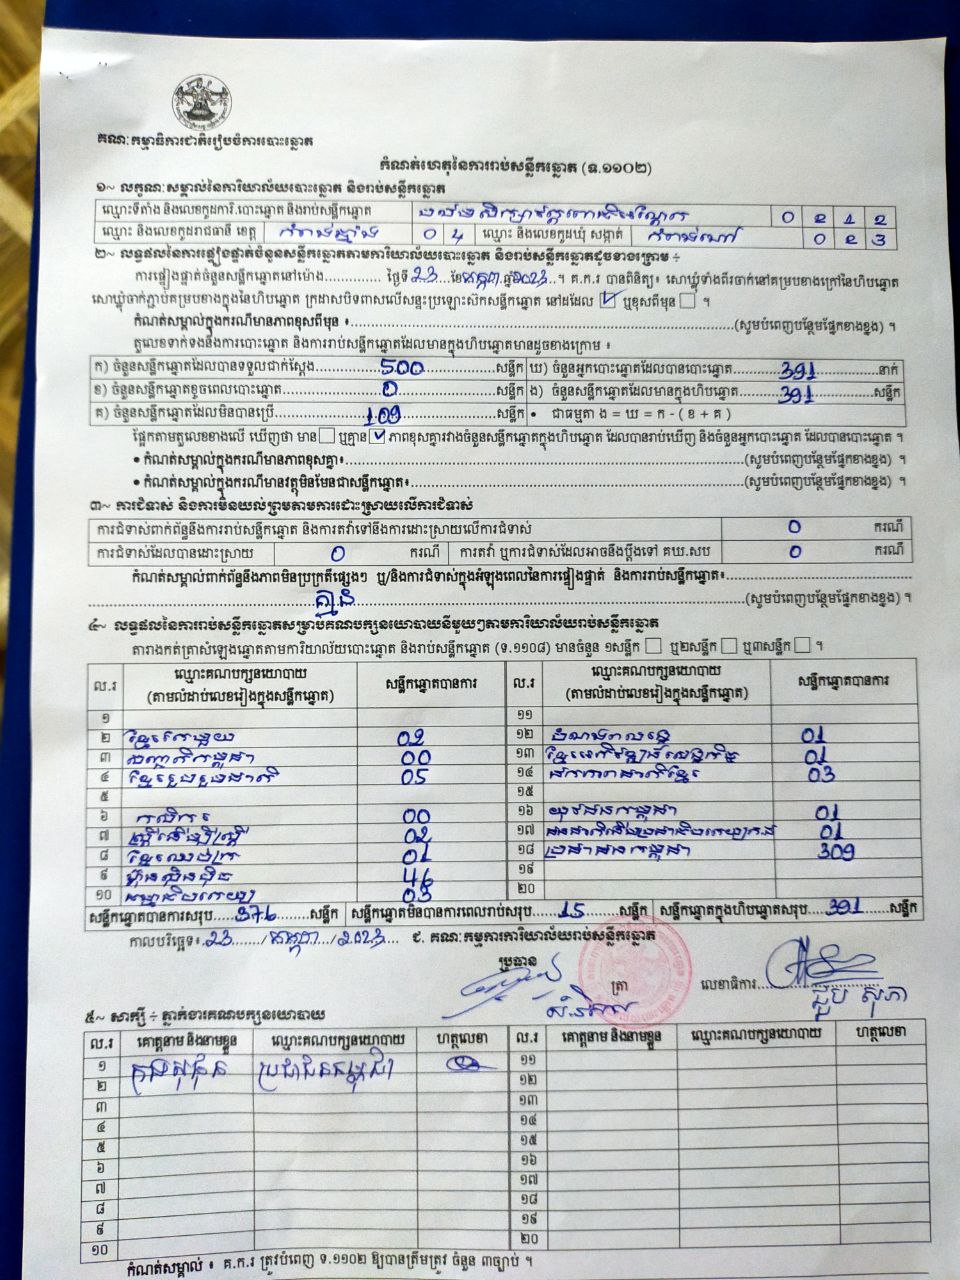 គណៈកម្មាធិការជាតិរៀបចំការបោះឆ្នោត
កំណត់ហេតុនៃការរាប់សន្លឹកឆ្នោត (ទ.១១០២)
១~ លក្ខណៈសម្គាល់នៃការិយាល័យបោះឆ្នោត និងរាប់សន្លឹកឆ្នោត
ឈ្មោះទីតាំង និងលេខកូដការិ.បោះឆ្នោត និងរាប់សន្លឹកឆ្នោត 0 2 1 2
ឈ្មោះ និងលេខកូដរាជធានី ខេត្ត កំពង់ឆ្នាំង 0 4 ឈ្មោះ និងលេខកូដឃុំ សង្កាត់ 0 2 3
២~ លទ្ធផលនៃការផ្ទៀងផ្ទាត់ចំនួនសន្លឹកឆ្នោតតាមការិយាល័យបោះឆ្នោត និងរាប់សន្លឹកឆ្នោតដូចខាងក្រោម ÷
ការផ្ទៀងផ្ទាត់ចំនួនសន្លឹកឆ្នោតនៅម៉ោង.............. ថ្ងៃទី 23 ខែ កក្កដា ឆ្នាំ 2023 ។ គ.ក.រ បានពិនិត្យ៖ សោឃ្លុំទាំងពីរចាក់នៅគម្របខាងក្រៅនៃហិបឆ្នោត
សោឃ្លុំចាក់ភ្ជាប់គម្របខាងក្នុងនៃហិបឆ្នោត ក្រដាសបិទពាសលើសន្ទះប្រឡោះសិកសន្លឹកឆ្នោត នៅដដែល ☑ ឬខុសពីមុន ☐ ។
កំណត់សម្គាល់ក្នុងករណីមានភាពខុសពីមុន ៖..............(សូមបំពេញបន្ថែមផ្នែកខាងខ្នង) ។
តួលេខទាក់ទងនឹងការបោះឆ្នោត និងការរាប់សន្លឹកឆ្នោតដែលមានក្នុងហិបឆ្នោតមានដូចខាងក្រោម ៖
ក) ចំនួនសន្លឹកឆ្នោតដែលបានទទួលជាក់ស្តែង 500 សន្លឹក ឃ) ចំនួនអ្នកបោះឆ្នោតដែលបានបោះឆ្នោត 391 នាក់
ខ) ចំនួនសន្លឹកឆ្នោតខូចពេលបោះឆ្នោត 0 សន្លឹក ង) ចំនួនសន្លឹកឆ្នោតដែលមានក្នុងហិបឆ្នោត 391 សន្លឹក
គ) ចំនួនសន្លឹកឆ្នោតដែលមិនបានប្រើ 109 សន្លឹក • ជាធម្មតា ង = ឃ = ក - ( ខ + គ )
ផ្អែកតាមតួលេខខាងលើ ឃើញថា មាន ☐ ឬគ្មាន ☑ ភាពខុសគ្នារវាងចំនួនសន្លឹកឆ្នោតក្នុងហិបឆ្នោត ដែលបានរាប់ឃើញ និងចំនួនអ្នកបោះឆ្នោត ដែលបានបោះឆ្នោត ។
• កំណត់សម្គាល់ក្នុងករណីមានភាពខុសគ្នា៖..............(សូមបំពេញបន្ថែមផ្នែកខាងខ្នង) ។
• កំណត់សម្គាល់ក្នុងករណីមានវត្ថុមិនមែនជាសន្លឹកឆ្នោត៖..............(សូមបំពេញបន្ថែមផ្នែកខាងខ្នង) ។
៣~ ការជំទាស់ និងការមិនយល់ព្រមតាមការដោះស្រាយលើការជំទាស់
ការជំទាស់ពាក់ព័ន្ធនឹងការរាប់សន្លឹកឆ្នោត និងការតវ៉ាទៅនឹងការដោះស្រាយលើការជំទាស់ 0 ករណី
ការជំទាស់ដែលបានដោះស្រាយ 0 ករណី ការតវ៉ា ឬការជំទាស់ដែលអាចនឹងប្តឹងទៅ គឃ.សប 0 ករណី
កំណត់សម្គាល់ពាក់ព័ន្ធនឹងភាពមិនប្រក្រតីផ្សេងៗ ឬ/និងការជំទាស់ក្នុងអំឡុងពេលនៃការផ្ទៀងផ្ទាត់ និងការរាប់សន្លឹកឆ្នោត៖..............
គ្មាន (សូមបំពេញបន្ថែមផ្នែកខាងខ្នង) ។
៤~ លទ្ធផលនៃការរាប់សន្លឹកឆ្នោតសម្រាប់គណបក្សនយោបាយនីមួយៗតាមការិយាល័យរាប់សន្លឹកឆ្នោត
តារាងកត់ត្រាសំឡេងឆ្នោតតាមការិយាល័យបោះឆ្នោត និងរាប់សន្លឹកឆ្នោត (ទ.១១០៨) មានចំនួន ១សន្លឹក ☐ ឬ២សន្លឹក ☐ ឬ៣សន្លឹក ☐ ។
ល.រ ឈ្មោះគណបក្សនយោបាយ (តាមលំដាប់លេខរៀងក្នុងសន្លឹកឆ្នោត) សន្លឹកឆ្នោតបានការ ល.រ ឈ្មោះគណបក្សនយោបាយ (តាមលំដាប់លេខរៀងក្នុងសន្លឹកឆ្នោត) សន្លឹកឆ្នោតបានការ
១ ១១
២ 02 ១២ 01
៣ 00 ១៣ 01
៤ ខ្មែររួបរួមជាតិ 05 ១៤ 03
៥ ១៥
៦ កសិករ 00 ១៦ យុវជនកម្ពុជា 01
៧ 02 ១៧ 01
៨ 01 ១៨ ប្រជាជនកម្ពុជា 309
៩ ហ៊្វុនស៊ិនប៉ិច 46 ១៩
១០ 03 ២០
សន្លឹកឆ្នោតបានការសរុប 376 សន្លឹក សន្លឹកឆ្នោតមិនបានការពេលរាប់សរុប 15 សន្លឹក សន្លឹកឆ្នោតក្នុងហិបឆ្នោតសរុប 391 សន្លឹក
កាលបរិច្ឆេទ៖ 23 / កក្កដា / 2023 ជ. គណៈកម្មការការិយាល័យរាប់សន្លឹកឆ្នោត
ប្រធាន ត្រា លេខាធិការ
៥~ សាក្សី ÷ ភ្នាក់ងារគណបក្សនយោបាយ
ល.រ គោត្តនាម និងនាមខ្លួន ឈ្មោះគណបក្សនយោបាយ ហត្ថលេខា ល.រ គោត្តនាម និងនាមខ្លួន ឈ្មោះគណបក្សនយោបាយ ហត្ថលេខា
១ ប្រជាជនកម្ពុជា ១១
២ ១២
៣ ១៣
៤ ១៤
៥ ១៥
៦ ១៦
៧ ១៧
៨ ១៨
៩ ១៩
១០ ២០
កំណត់សម្គាល់ ៖ គ.ក.រ ត្រូវបំពេញ ទ.១១០២ ឱ្យបានត្រឹមត្រូវ ចំនួន ៣ច្បាប់ ។